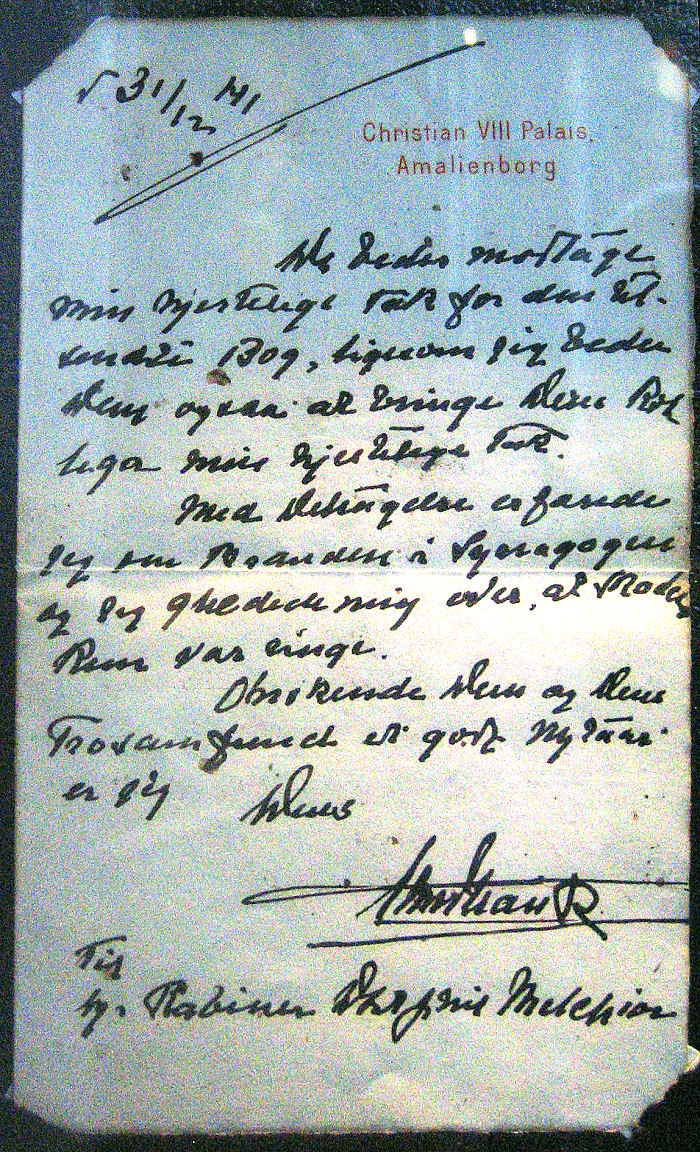 d 31/12 41
Christian VIII Palais,
Amalienborg
De bedes modtage
min hjertelige Tak for den til-
sendte Bog, ligesom jeg beder
Dem ogsaa at bringe Deres Kol-
lega min hjertelige Tak.
Med Beklagelse erfarede
jeg om Branden i Synagogen
og jeg glædede mig over, at Skaden
Kun var ringe.
Ønskende Dem og Deres
Trosamfund et godt Nytaar
er jeg
Deres
Christian R
Til
Hr. Rabiner Melchior